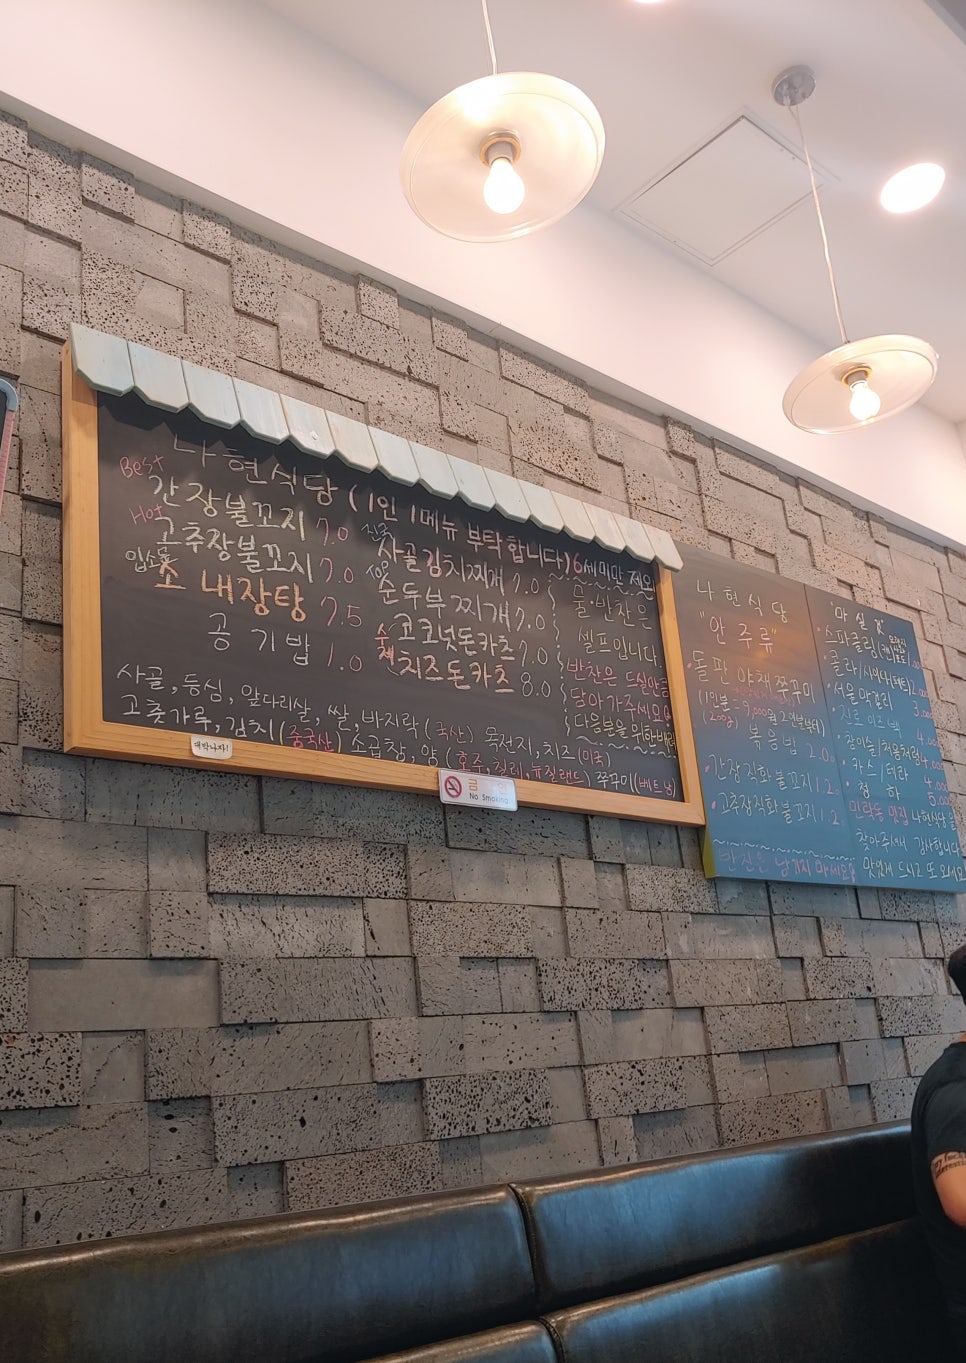 나현식당 (1인 1메뉴 부탁합니다) 6세미만 제외
Best
간장불꼬지 7.0
Hot
고추장불꼬지 7.0
입소문
소 내장탕 7.5
공기밥 1.0
사골김치찌개 7.0
순두부찌개 7.0
수제
코코넛돈카츠 7.0
치즈돈카츠 8.0
물·반찬은
셀프입니다.
반찬은 드실만큼
담아가주세요
다음분을 위한배려
사골, 등심, 앞다리살, 쌀, 바지락 (국산) 목전지, 치즈 (미국)
고춧가루, 김치 (중국산) 소곱창, 양 (호주, 칠레, 뉴질랜드) 쭈꾸미 (베트남)
대박나자!
금연
No Smoking
나현식당
"안주류"
돌판야채쭈꾸미
(1인분=9,000원 2인분부터)
(200g)
볶음밥 2.0
간장직화불꼬지 1.2
고추장직화불꼬지 1.2
잔신은 남기지 마세요
"마실것"
스파클링
콜라/사이다
서울막걸리 3.000
진로이즈백 4.000
참이슬/처음처럼 4.000
카스/테라 4.000
청하 5.000
민락동 맛집 나현식당을
찾아주셔서 감사합니다
맛있게 드시고 또 오세요